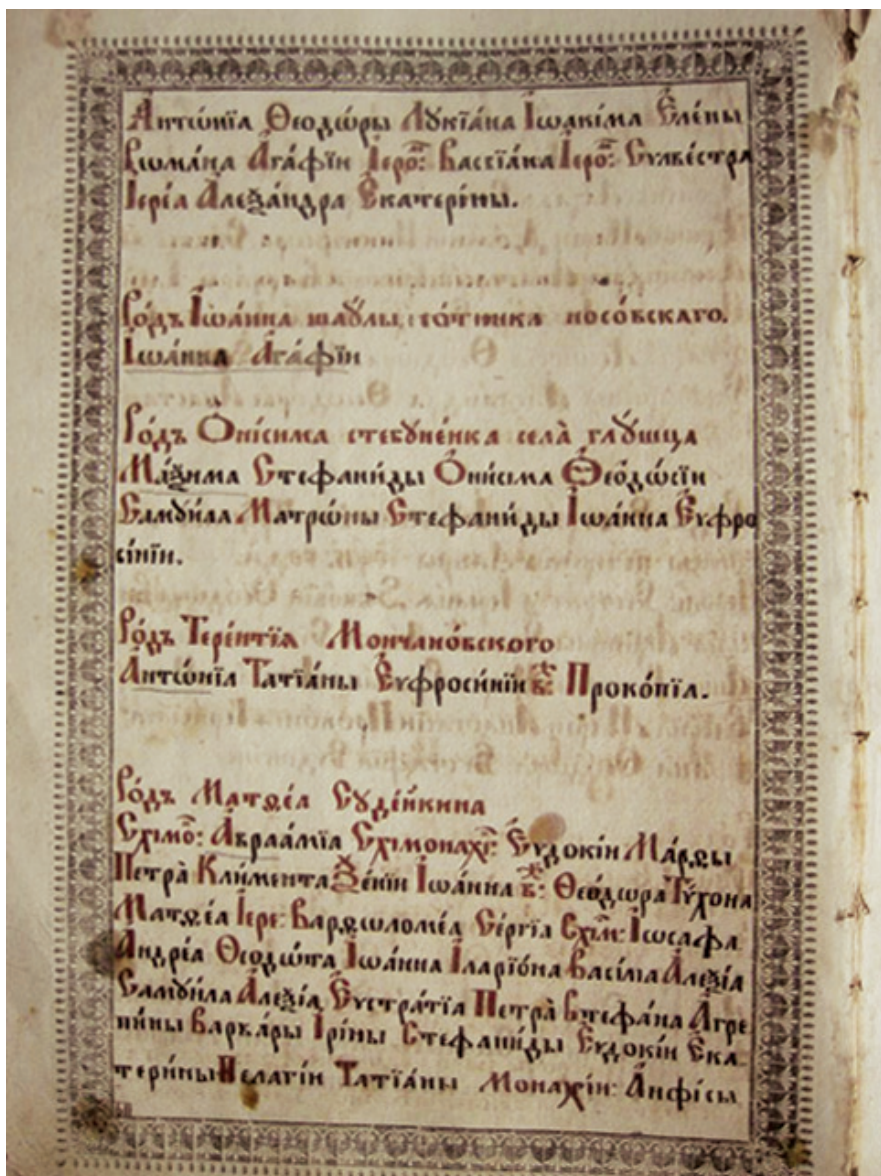 Антѡ́нїа Ѳеодѡ́ры Лꙋкїа́на І҆ѡакі́ма Є҆ле́ны
Рѡма́на А҆га́фїи І҆еро҃: Вассїа́на І҆еро҃: Сѵлве́стра
І҆ере́а А҆леѯа́ндра Є҆катері́ны.
Ро́дъ І҆ѡа́нна шаꙋ́лы со́тника носо́вскаго.
І҆ѡа́нна А҆га́фїи
Ро́дъ Ѻ҆ни́сима стебꙋне́нка села̀ глꙋ́шца
Ма́ѯима Стефани́ды Ѻ҆ни́сима Ѳео́дѡсїи
Самꙋи́ла Матрѡ́ны Стефани́ды І҆ѡа́нна Є҆ѵфро
сі́нїи.
Ро́дъ Тере́нтїѧ Мончано́вского
Антѡ́нїа Татїа́ны Є҆ѵфроси́нїи в҃: Проко́пїа.
Ро́дъ Матѳе́а Сꙋде́йкина
Схимо҃: А҆враа́мїа Схімонахі҃: Є҆ѵдокі́и Ма́рѳы
Петра̀ Кли́мента Ѯе́нїи І҆ѡа́нна в҃: Ѳео́дѡра Тѵ́хона
Матѳе́а І҆ере: Варѳоломе́а Се́ргїа Схі҃м: І҆ѡса́фа
Андре́а Ѳеодѡ́та І҆ѡа́нна І҆ларїо́на Васі́ма А҆леѯі́а
Самꙋи́ла А҆леѯі́а Є҆ѵстра́тїа Петра̀ Стефа́на А҆гре
пи́ны Варва́ры І҆рі́ны Стефани́ды Є҆ѵдокі́и Є҆ка
тери́ны Пелагі́и Татїа́ны Монахі́и: А҆нфі́сы